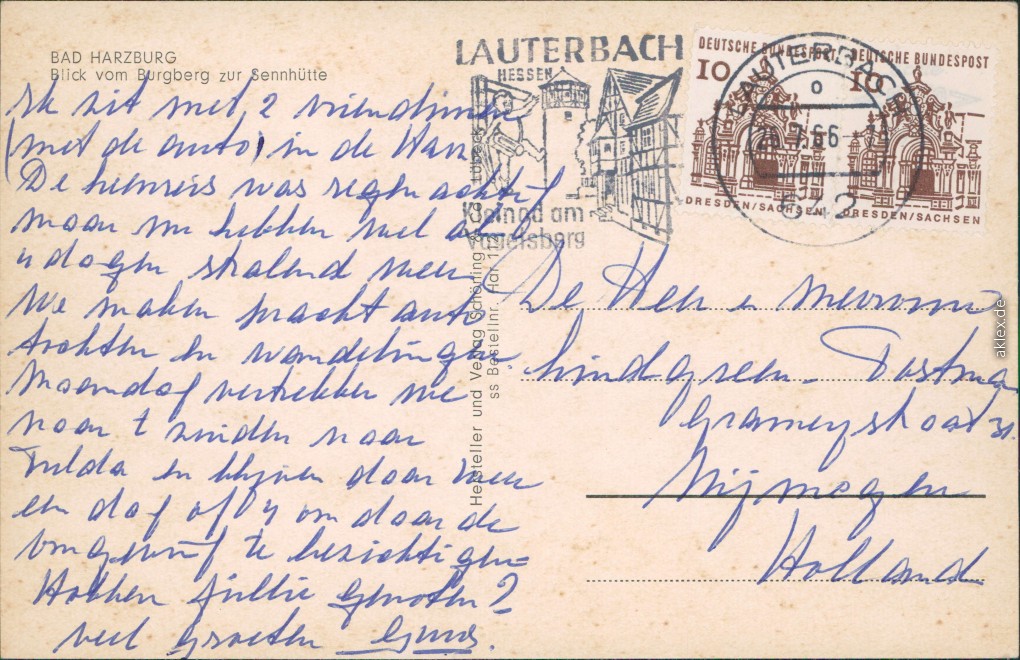 BAD HARZBURG
Blick vom Burgberg zur Sennhütte
Ik zit met 2 vriendinnen
(met de auto) in de Harz
De heenreis was regenachtig
maar we hebben nu al
4 dagen stralend weer
We maken pracht auto
tochten en wandelingen.
Maandag vertrekken we
naar 't zuiden naar
Fulda en blijven daar weer
een dag of om daar de
omgeving te bezichtigen
Hebben jullie genoten?
veel groeten
LAUTERBACH
HESSEN
Kleinod am
Vogelsberg
DEUTSCHE BUNDESPOST
10
DRESDEN/SACHSEN
DEUTSCHE BUNDESPOST
10
DRESDEN/SACHSEN
642
7.66
De Heer e Mevrouw
Lindgreen - Postma
straat
Nijmegen
Holland
Hersteller und Verlag Schöning
ss Bestellnr. Har
aklex.de